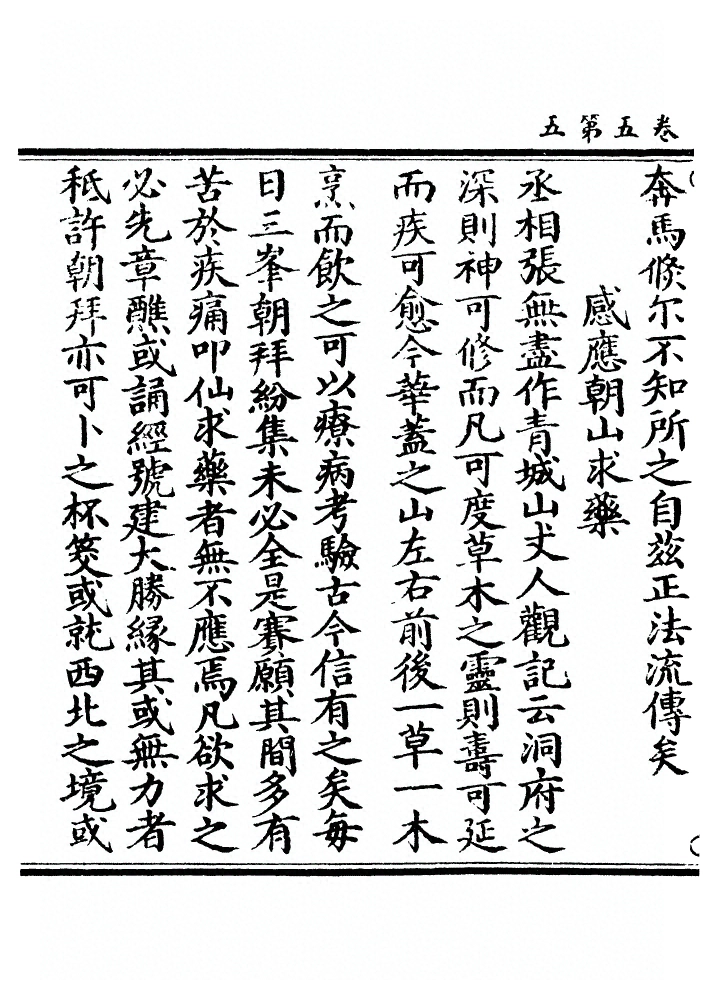 卷五第五
奔馬倐尔不知所之自兹正法流傳矣
感應朝山求藥
丞相張無盡作青城山丈人觀記云洞府之
深則神可修而凡可度草木之靈則壽可延
而疾可愈今華蓋之山左右前後一草一木
烹而飲之可以療病考驗古今信有之矣每
日三峯朝拜紛集未必全是賽願其間多有
苦於疾痛叩仙求藥者無不應焉凡欲求之
必先章醮或誦經號建大勝緣其或無力者
秪許朝拜亦可卜之杯筊或就西北之境或